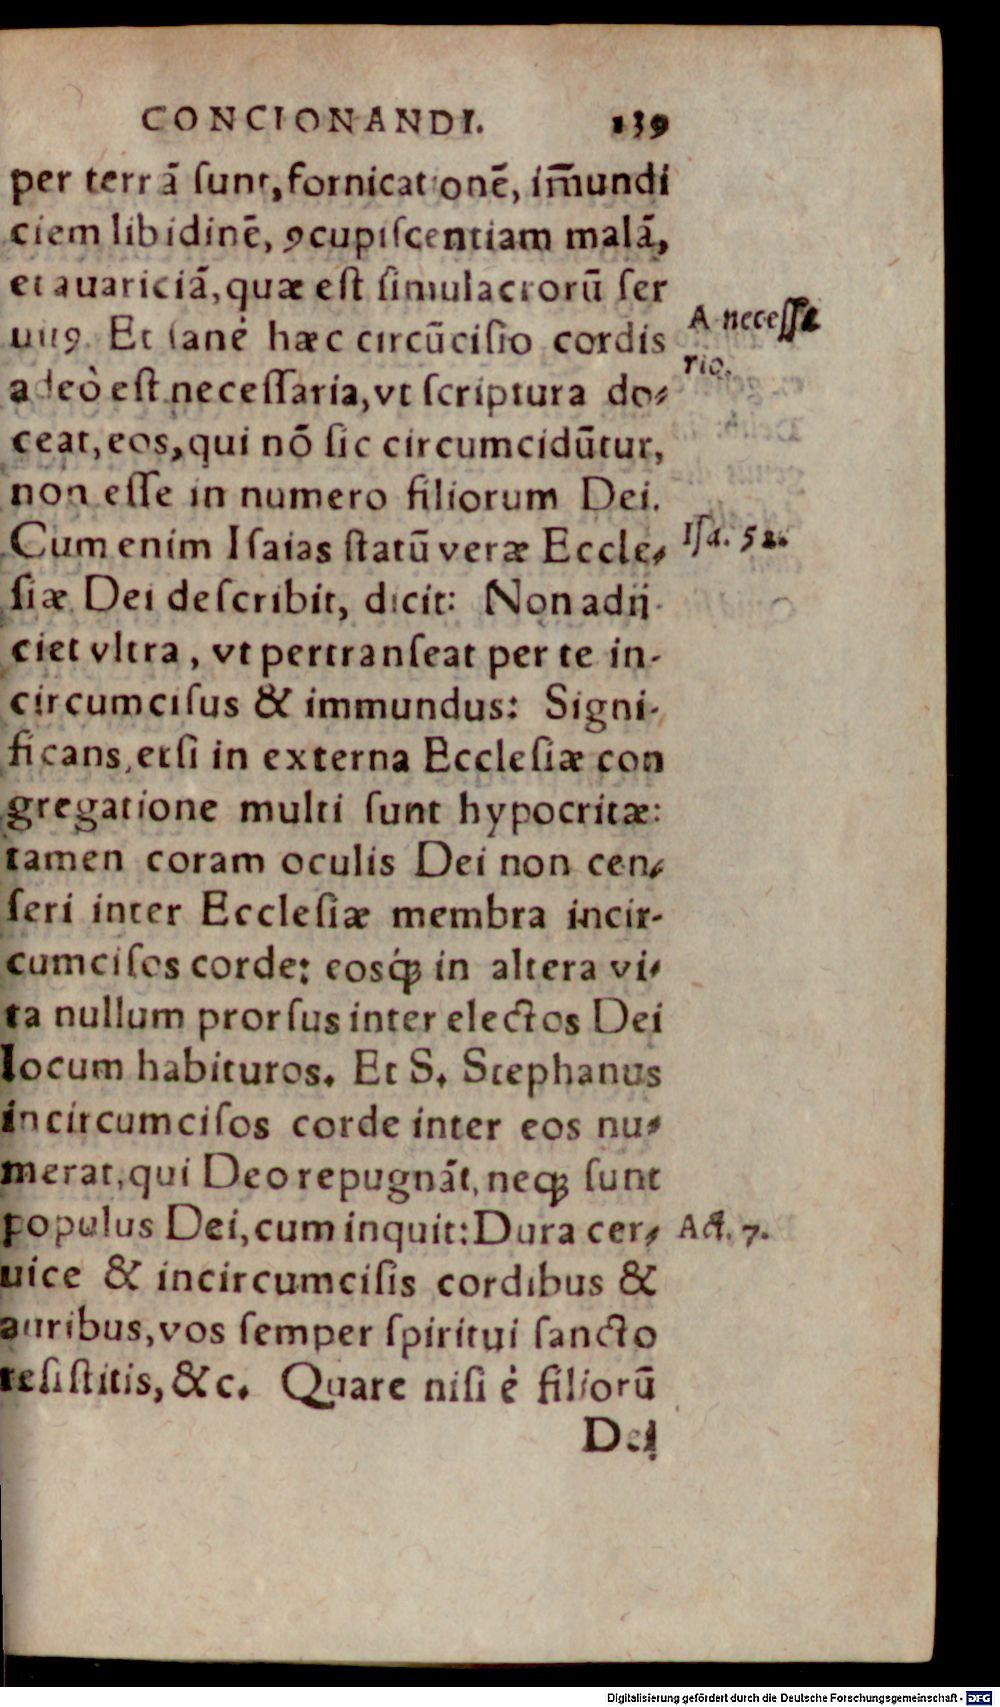 CONCIONANDI. 139
per terrā ſunt, fornicationē, im̄undi
ciem libidinē, ꝯcupiſcentiam malā,
et auariciā, quæ eſt ſimulacrorū ſer
uitꝰ. Et ſanè hæc circūciſio cordis
A neceſſa
rio.
adeò eſt neceſſaria, vt ſcriptura do⸗
ceat, eos, qui nō ſic circumcidūtur,
non eſſe in numero filiorum Dei.
Cum enim Iſaias ſtatū veræ Eccle⸗
Iſa. 52.
ſiæ Dei deſcribit, dicit: Non adij-
ciet vltra, vt pertranſeat per te in-
circumciſus & immundus: Signi-
ficans, etſi in externa Eccleſiæ con
gregatione multi ſunt hypocritæ:
tamen coram oculis Dei non cen⸗
ſeri inter Eccleſiæ membra incir-
cumciſos corde: eosq́ꝫ in altera vi⸗
ta nullum prorſus inter electos Dei
locum habituros. Et S. Stephanus
incircumciſos corde inter eos nu⸗
merat, qui Deo repugnāt, neqꝫ ſunt
populus Dei, cum inquit: Dura cer⸗
Act. 7.
uice & incircumciſis cordibus &
auribus, vos ſemper ſpiritui ſancto
reſiſtitis, &c. Quare niſi è filiorū
Dei
Digitalisierung gefördert durch die Deutsche Forschungsgemeinschaft - DFG